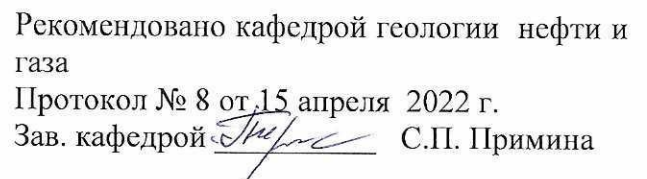 Рекомендовано кафедрой геологии нефти и
газа
Протокол № 8 от 15 апреля 2022 г.
Зав. кафедрой С.П. Примина